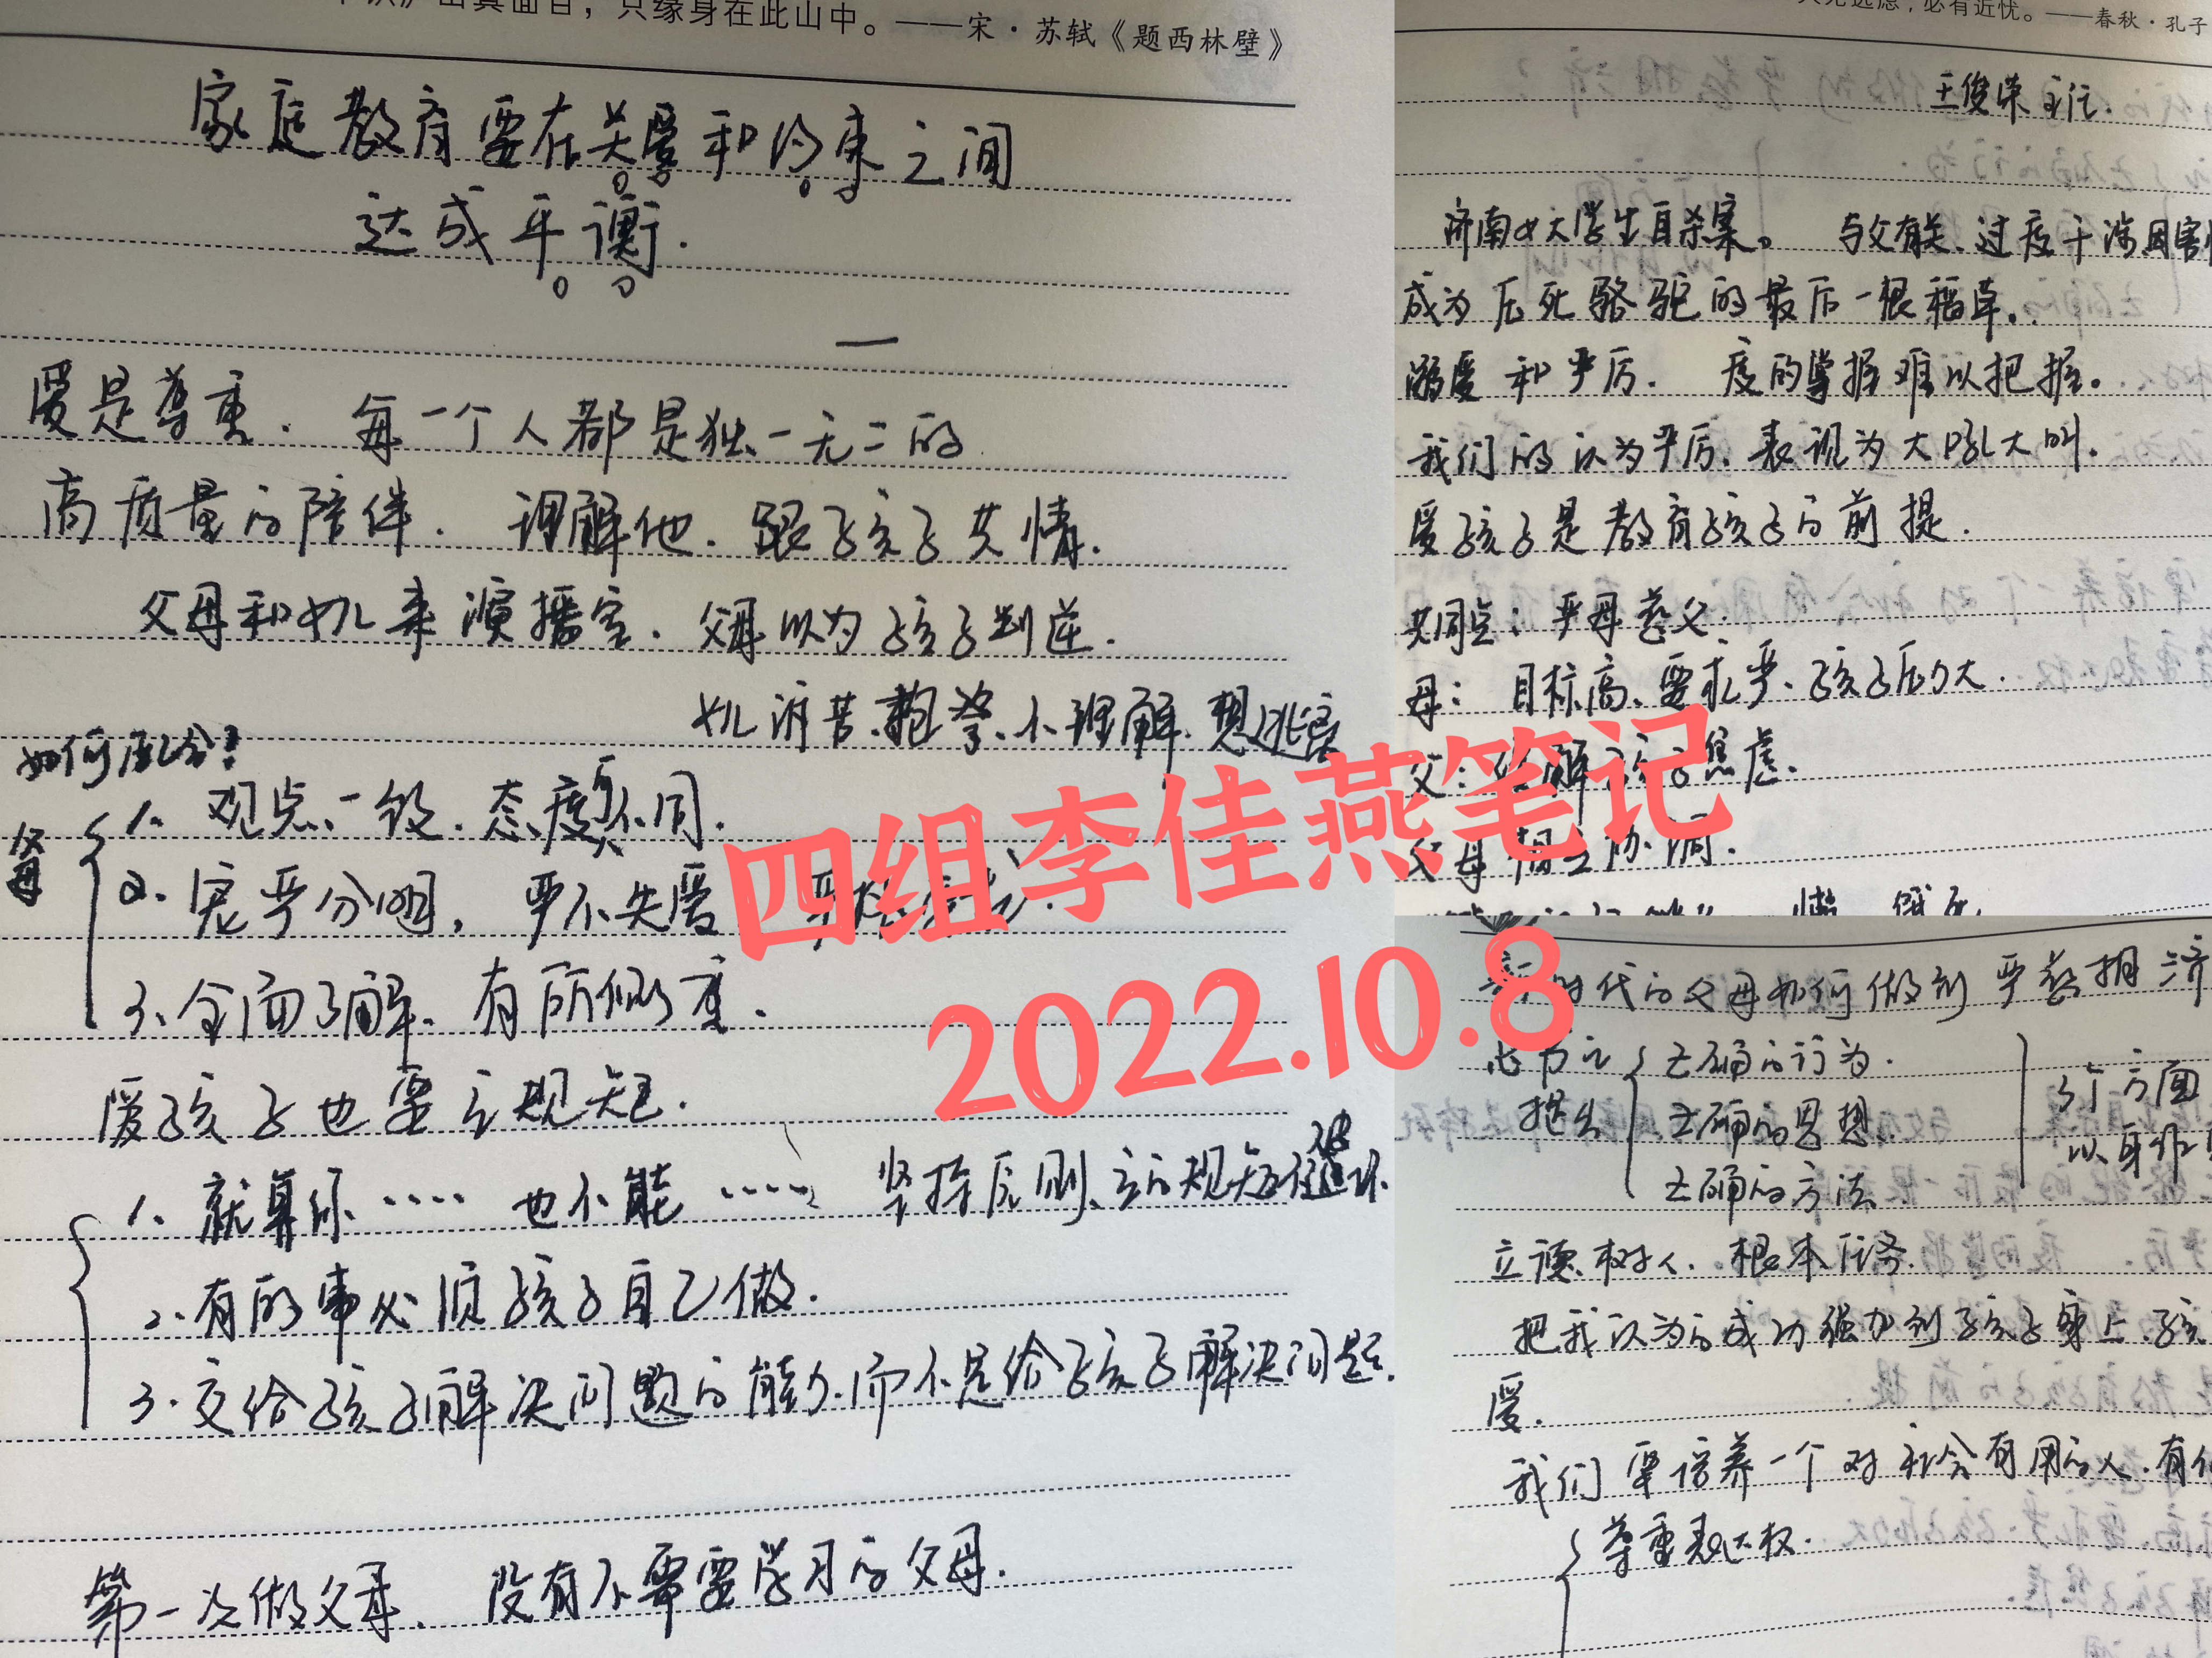 出真面目，只缘身在此山中。——宋·苏轼《题西林壁》
家庭教育要在关爱和约束之间
达成平衡.
爱是尊重. 每一个人都是独一无二的.
高质量的陪伴. 理解他. 跟孩子共情.
父母和女儿来演播室. 父母以为孩子叛逆.
女儿诉苦、抱怨、不理解、想逃离
如何配合?
父母
1、观点一致. 态度可不同.
2. 宽严分明, 严不失爱
3、全面了解、有所侧重.
爱孩子也要立规矩.
1、就算你…… 也不能…… 坚持原则、立的规矩
2.有的事必须孩子自己做.
3.交给孩子解决问题的能力.而不是给孩子解决问题.
第一次做父母、没有不需要学习的父母.
人无远虑，必有近忧。——春秋·孔子
王俊荣主任.
济南女大学生自杀案。 与父有关、过度干涉
成为压死骆驼的最后一根稻草.
溺爱和严厉. 度的掌握难以把握。
我们的认为严厉、表现为大吼大叫.
爱孩子是教育孩子的前提.
共同点: 严母慈父.
母: 目标高、要求严、孩子压力大.
父: 解孩子焦虑.
父母相互协调.
新时代的父母如何做到严慈相济
提出
正确的行为.
正确的思想.
正确的方法
3个方面
以身作则
立德树人. 根本任务.
把我认为的成功强加到孩子身上.孩
爱.
我们要培养一个对社会有用的人.有
尊重表达权.
四组李佳燕笔记
2022.10.8